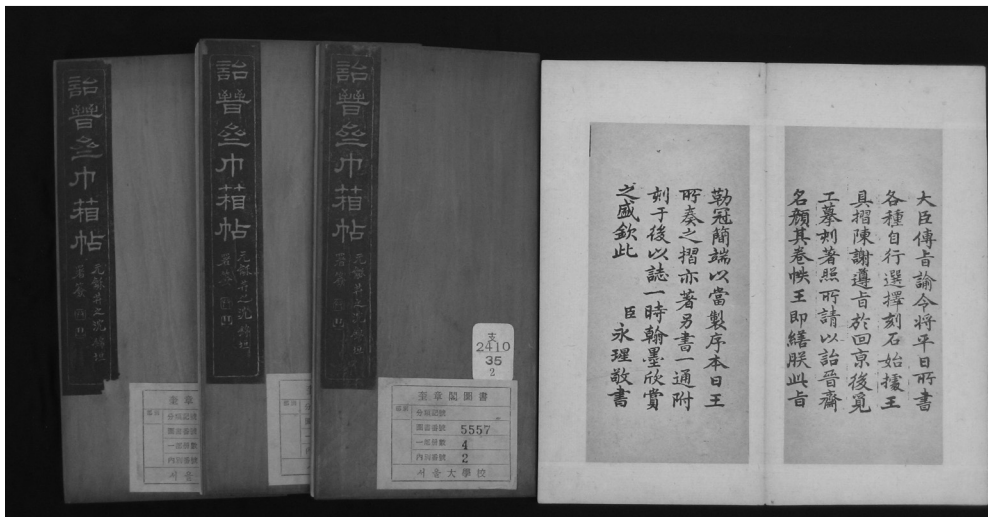 詒晉齋巾箱帖
詒晉齋巾箱帖
詒晉齋巾箱帖
支
2410
35
2
奎章
奎章閣圖書
圖書番號 5557
一部冊數 4
內別番號 2
서울大學校
서울
大臣傳旨諭令將平日所書
各種自行選擇刻石始據王
具摺陳謝遵旨於回京後覓
工摹刻著照所請以詒晉齋
名顏其卷帙王即繕朕此旨
勒冠簡端以當製序本日王
所奏之摺亦著另書一通附
刻于後以誌一時翰墨欣賞
之盛欽此
臣永瑆敬書